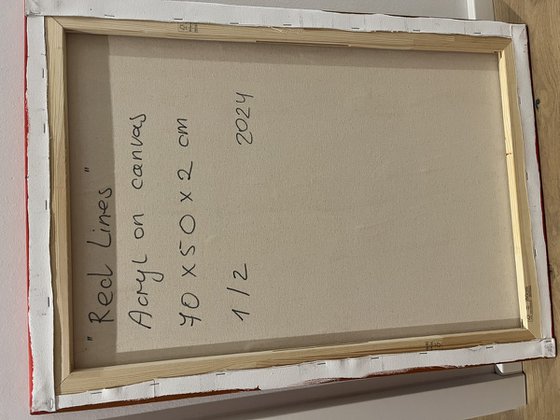 "Red Lines"
Acryl on canvas
70 x 50 x 2 cm
1/2 2024